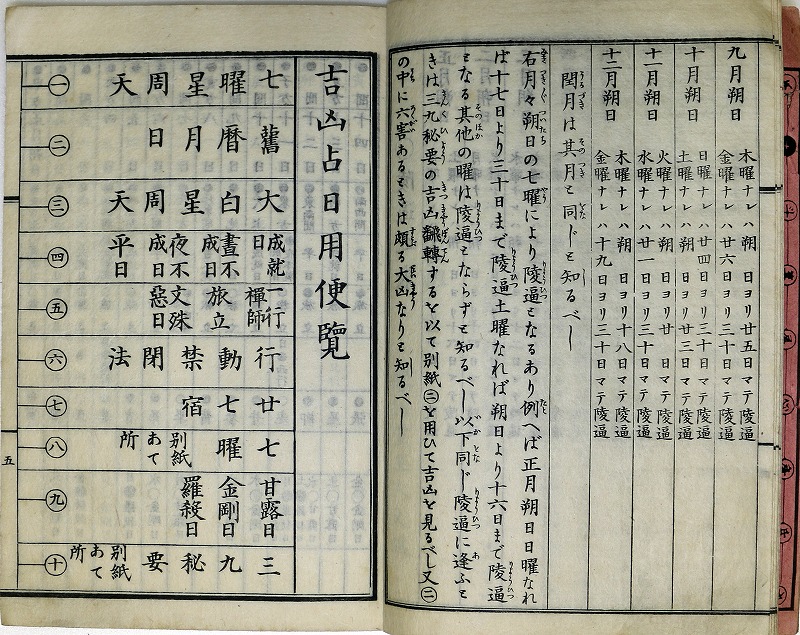 九月朔日
木曜ナレハ朔日ヨリ廿五日マテ陵逼
金曜ナレハ廿六日ヨリ三十日マテ陵逼
十月朔日
日曜ナレハ廿四日ヨリ三十日マテ陵逼
土曜ナレハ朔日ヨリ廿三日マテ陵逼
十一月朔日
火曜ナレハ朔日ヨリ廿日マテ陵逼
水曜ナレハ廿一日ヨリ三十日マテ陵逼
十二月朔日
木曜ナレハ朔日ヨリ十八日マテ陵逼
金曜ナレハ十九日ヨリ三十日マテ陵逼
閏月は其月と同じと知るべし
右月々朔日の七曜により陵逼となるあり例へば正月朔日日曜なれ
ば十七日より三十日まで陵逼土曜なれば朔日より十六日まで陵逼
となる其他の曜は陵逼とならずと知るべし以下同じ陵逼に逢ふと
きは三九秘要の吉凶翻轉するを以て別紙㊁を用ひて吉凶を見るべし又㊁
の中に六害あるときは頗る大凶なりと知るべし
吉凶占日用便覧
㊀ 七曜星周天
㊁ 舊暦月日
㊂ 大白星周天
㊃ 成就日 晝不成日 夜不成日 平日
㊄ 一行禪師 旅立 文殊惡日
㊅ 行動禁閉法
㊆ 廿七宿
㊇ 七曜 別紙あて所
㊈ 甘露日 金剛日 羅殺日
㊉ 三九秘要 別紙あて所
五